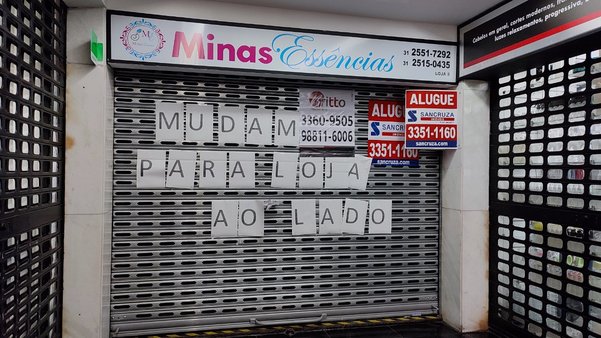 Minas Essências
31 2551-7292
31 2515-0435
LOJA II
Britto
3360-9505
98811-6006
ALUGUE
SANCRUZA
3351-1160
sancruza.com
ALUGUE
3351-1160
MUDAM
PARA LOJA
AO LADO
Cabelos em geral, cortes modernos,
luzes relaxamentos, progressiva,